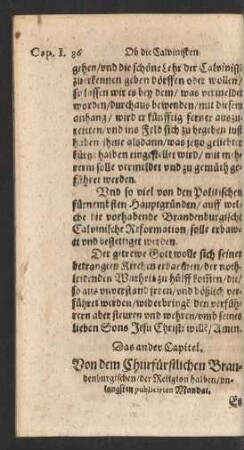 Cap. I. 86 Ob die Calvinisten
gehen/ vnd die schöne Lehr der Calvinisten
zuerkennen geben dörffen oder wollen/
so lassen wir es bey dem/ was vermeldet
worden/ durchaus bewenden/ mit diesem
anhang/ wird er künfftig ferner auszu-
reiten/ vnd ins Feld sich zu begeben lust
haben/ ihme alsdann/ was jetzo geliebter
kürtz halben eingestellet wird/ mit meh-
rerm solle vermeldet vnd zu gemüth ge-
führet werden.
Vnd so viel von den Politischen
fürnembsten Hauptgründen/ auff wel-
che die vorhabende Brandenburgische
Calvinische Reformation, solle erbaw-
et vnd befestiget werden.
Der getrewe Gott wolle sich seiner
betrangten Kirchen erbarmen/ der noth-
leidenden Warheit zu hülff kommen/ die
so aus vnverstand irren/ vnd bößlich ver-
führet werden/ widerbringen/ den verfüh-
rern aber steuren vnd wehren/ vmb seines
lieben Sons Jesu Christi wille/ Amen.
Das ander Capitel.
Von dem Churfürstlichen Bran-
denburgischen/ der Religion halben/ vn-
langsten publicirten Mandat.
Es